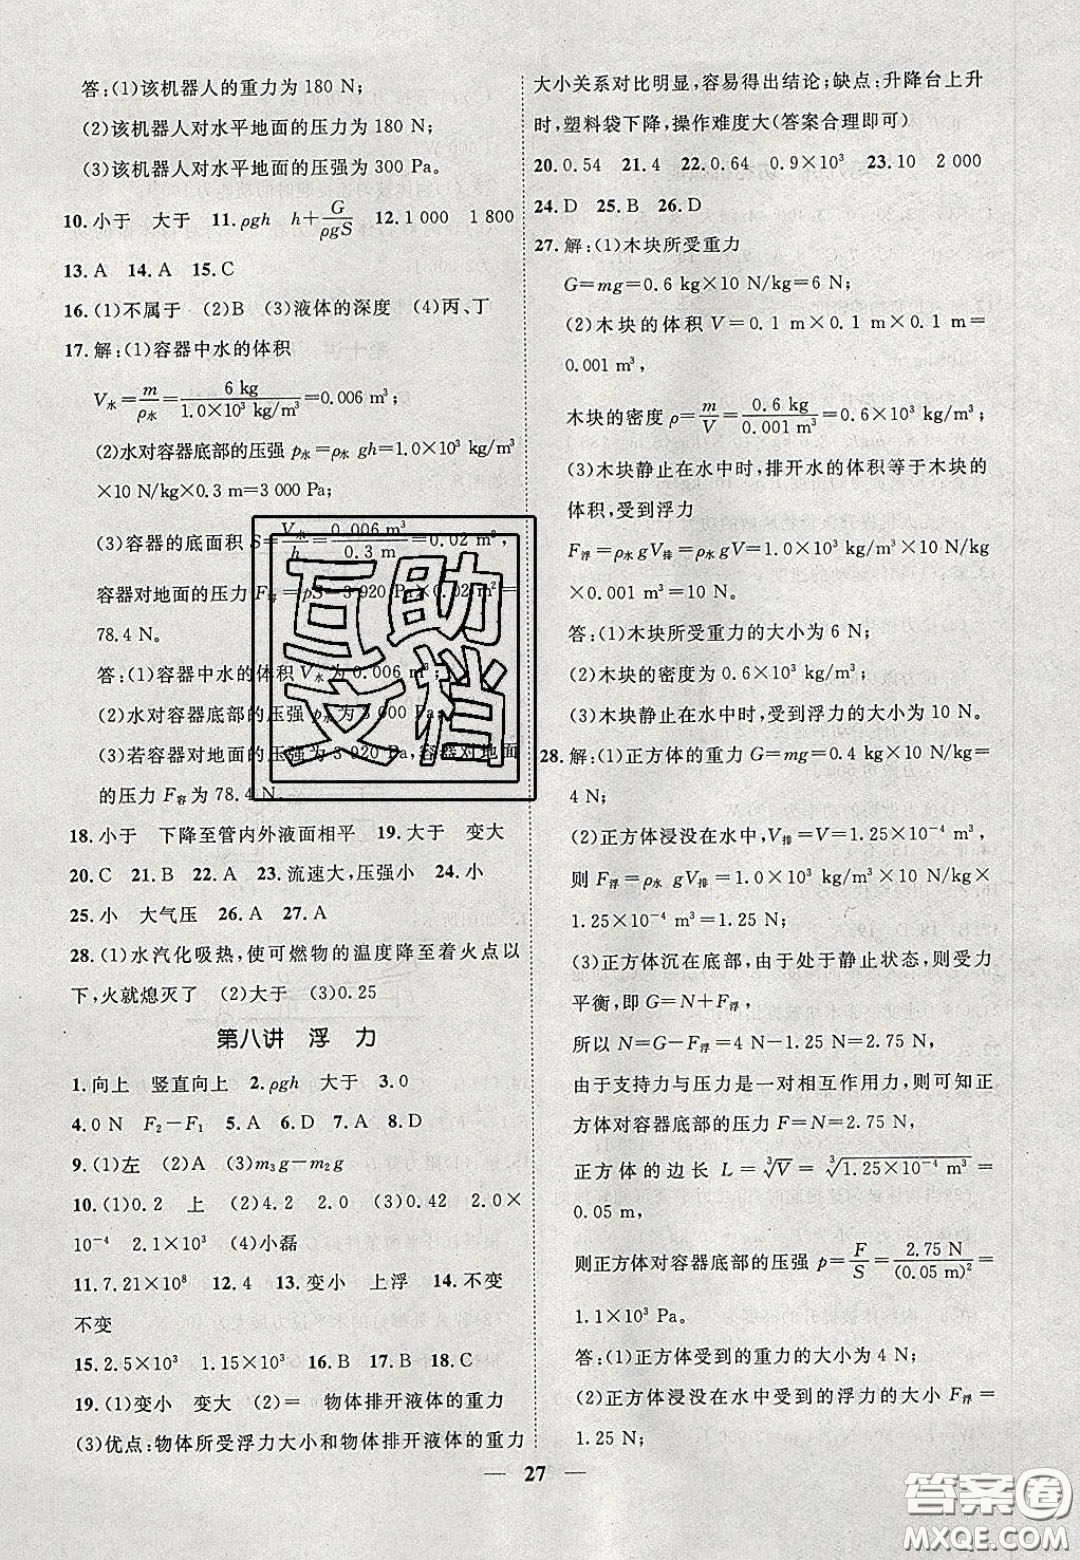 答:(1)该机器人的重力为180 N;
(2)该机器人对水平地面的压力为180 N;
(3)该机器人对水平地面的压强为300 Pa。
10.小于 大于 11.ρgh h+G/ρgS 12.1 000 1 800
13.A 14.A 15.C
16.(1)不属于 (2)B (3)液体的深度 (4)丙、丁
17.解:(1)容器中水的体积
V水=m/ρ水=6 kg/1.0×10³ kg/m³=0.006 m³;
(2)水对容器底部的压强 p水=ρ水 gh=1.0×10³ kg/m³
×10 N/kg×0.3 m=3 000 Pa;
(3)容器的底面积 S=V水/h=0.006 m³/0.3 m=0.02 m²,
容器对地面的压力 F容=pS=3 920 Pa×0.02 m²=
78.4 N。
答:(1)容器中水的体积 V水为 0.006 m³;
(2)水对容器底部的压强 p水为 3 000 Pa;
(3)若容器对地面的压强为 3 920 Pa,容器对地面
的压力 F容为 78.4 N。
18.小于 下降至管内外液面相平 19.大于 变大
20.C 21.B 22.A 23.流速大,压强小 24.小
25.小 大气压 26.A 27.A
28.(1)水汽化吸热,使可燃物的温度降至着火点以
下,火就熄灭了 (2)大于 (3)0.25
第八讲 浮 力
1.向上 竖直向上 2.ρgh 大于 3.0
4.0 N F₂-F₁ 5.A 6.D 7.A 8.D
9.(1)左 (2)A (3)m₃g-m₂g
10.(1)0.2 上 (2)4.2 2.0 (3)0.42 2.0×
10⁻⁴ 2.1×10³ (4)小磊
11.7.21×10⁸ 12.4 13.变小 上浮 14.不变
不变
15.2.5×10³ 1.15×10³ 16.B 17.B 18.C
19.(1)变小 变大 (2)= 物体排开液体的重力
(3)优点:物体所受浮力大小和物体排开液体的重力
大小关系对比明显,容易得出结论;缺点:升降台上升
时,塑料袋下降,操作难度大(答案合理即可)
20.0.54 21.4 22.0.64 0.9×10³ 23.10 2 000
24.D 25.B 26.D
27.解:(1)木块所受重力
G=mg=0.6 kg×10 N/kg=6 N;
(2)木块的体积 V=0.1 m×0.1 m×0.1 m=
0.001 m³,
木块的密度 ρ=m/V=0.6 kg/0.001 m³=0.6×10³ kg/m³;
(3)木块静止在水中时,排开水的体积等于木块的
体积,受到浮力
F浮=ρ水 gV排=ρ水 gV=1.0×10³ kg/m³×10 N/kg
×0.001 m³=10 N。
答:(1)木块所受重力的大小为 6 N;
(2)木块的密度为 0.6×10³ kg/m³;
(3)木块静止在水中时,受到浮力的大小为 10 N。
28.解:(1)正方体的重力 G=mg=0.4 kg×10 N/kg=
4 N;
(2)正方体浸没在水中,V排=V=1.25×10⁻⁴ m³,
则 F浮=ρ水 gV排=1.0×10³ kg/m³×10 N/kg×
1.25×10⁻⁴ m³=1.25 N;
(3)正方体沉在底部,由于处于静止状态,则受力
平衡,即 G=N+F浮,
所以 N=G-F浮=4 N-1.25 N=2.75 N,
由于支持力与压力是一对相互作用力,则可知正
方体对容器底部的压力 F=N=2.75 N,
正方体的边长 L=³√V=³√1.25×10⁻⁴ m³=
0.05 m,
则正方体对容器底部的压强 p=F/S=2.75 N/(0.05 m)²=
1.1×10³ Pa。
答:(1)正方体受到的重力的大小为 4 N;
(2)正方体浸没在水中受到的浮力的大小 F浮=
1.25 N;
27
互助
文档
答案圈
MXQE.COM